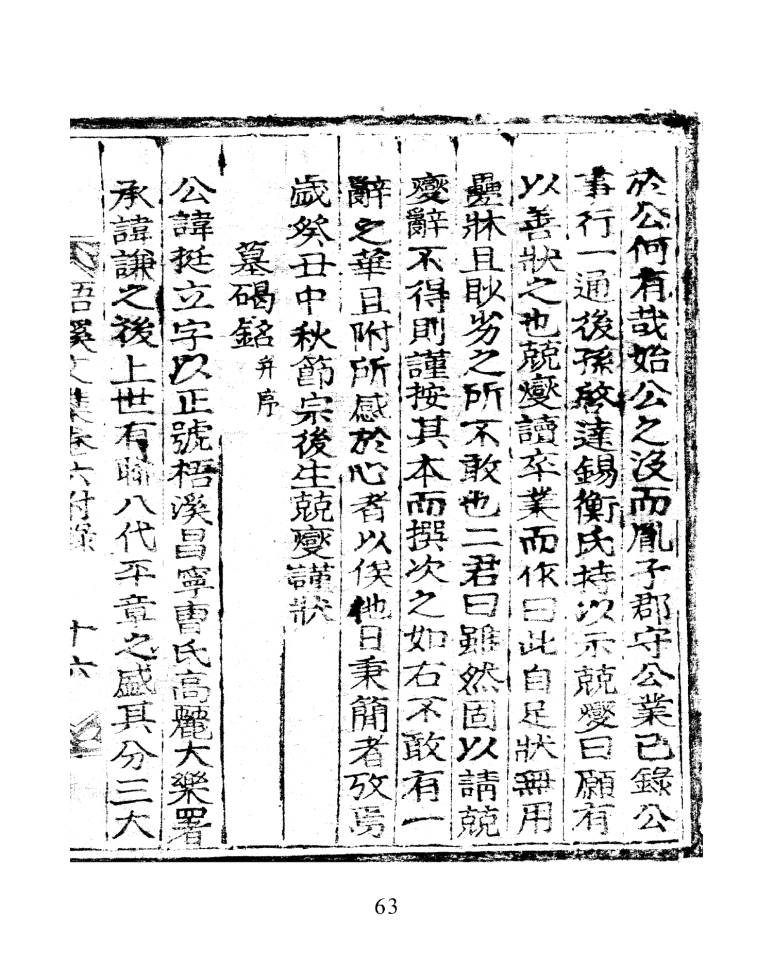 於公何有哉始公之沒而胤子郡守公業已錄公
事行一通後孫啓達錫衡氏持以示兢燮曰願有
以善狀之也兢燮讀卒業而作曰此自足狀無用
疊牀且眇劣之所不敢也二君曰雖然固以請兢
燮辭不得則謹按其本而撰次之如右不敢有一
辭之華且附所感於心者以俟他日秉簡者攷焉
歲癸丑中秋節宗後生兢燮謹狀
墓碣銘 并序
公諱挺立字以正號梧溪昌寧曺氏高麗大樂署
承諱謙之後上世有聯八代平章之盛其分三大
梧溪文集卷六附錄 十六
63